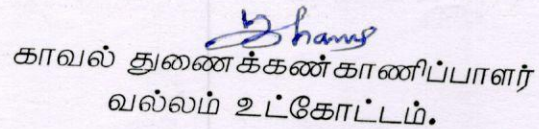 காவல் துணைக்கண்காணிப்பாளர்
வல்லம் உட்கோட்டம்.